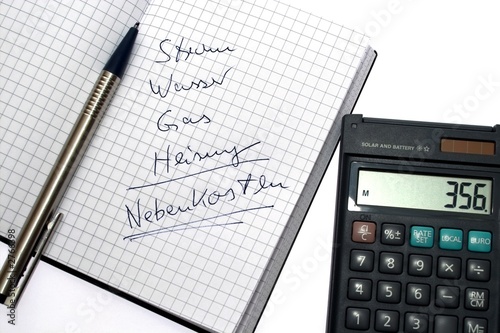 Strom
Wasser
Gas
Heizung
Nebenkosten
SOLAR AND BATTERY
M 356.
%± RATE SET LOCAL EURO
7 8 9 × ÷
4 5 6 - RM CM
1 2 3